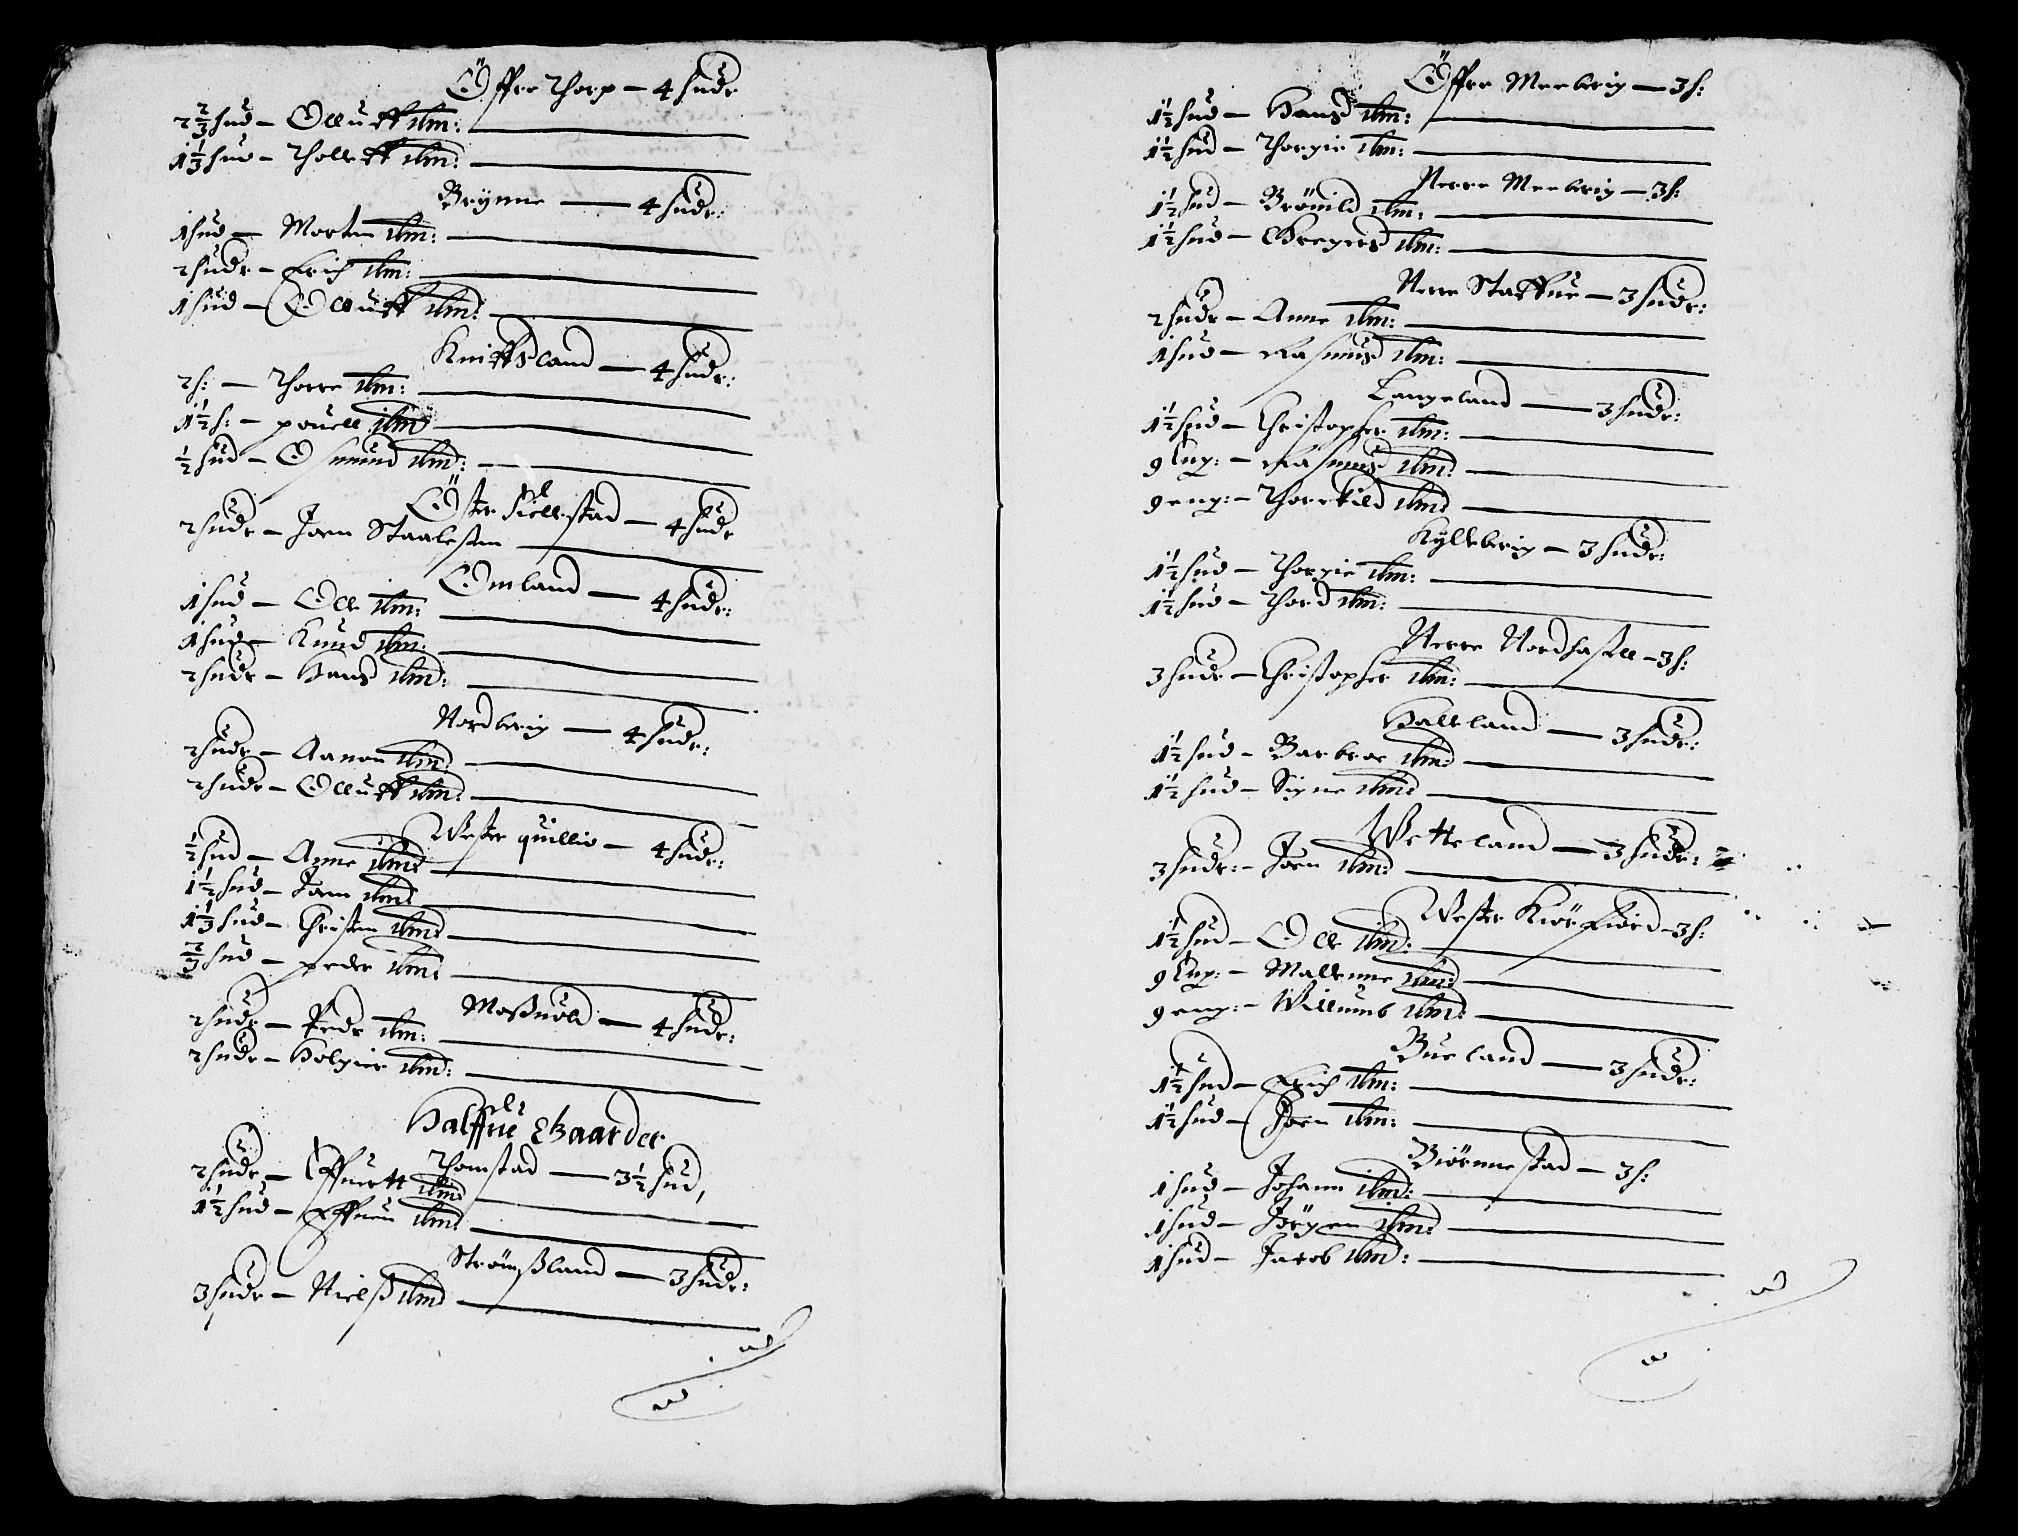 Öffre Thorp — 4 hudr
2 2/3 hud — Olluff ibm:
1 1/3 hud — Tholleff ibm:
Brynne — 4 hudr:
1 hud — Morten ibm:
2 hudr — Erich ibm:
1 hud — Olluff ibm:
Kniffsland — 4 hudr:
2 h: — Thorre ibm:
1 1/2 h: — povell ibm
1/2 hud — Osmund ibm:
Öster Siellestad — 4 hudr
2 hudr — Joen Staalesen
Omland — 4 hudr:
1 hud — Olle ibm:
1 hud — Knud ibm:
2 hudr — Hans ibm:
Nordberig — 4 hudr:
2 hudr — Aanon ibm:
2 hudr — Olluff ibm:
Wester quillio — 4 hudr:
1/2 hud — Anne ibm:
1 1/2 hud — Joen ibm:
1 1/3 hud — Christen ibm:
2/3 hud — peder ibm:
Moßuold — 4 hudr:
2 hudr — Pedr ibm:
2 hudr — Holgier ibm:
Halffue Gaarder
Thomstad — 3 1/2 hud,
2 hudr — Effuertt ibm:
1 1/2 hud — Effuen ibm:
Strömßland — 3 hudr:
3 hudr — Nielß ibm
Öffre Meeberig — 3 h:
1 1/2 hud — Hans ibm:
1 1/2 hud — Thorgie ibm:
Nerre Meeberig — 3 h:
1 1/2 hud — Brönild ibm:
1 1/2 hud — Gregers ibm:
Nerre Staffue — 3 hudr:
2 hudr — Anne ibm:
1 hud — Rasmus ibm:
Langeland — 3 hudr:
1 1/2 hud — Christopher ibm:
9 eng: — Rasmus ibm:
9 eng: — Thorekild ibm
Kylleberig — 3 hudr:
1 1/2 hud — Thorgie ibm:
1 1/2 hud — Thord ibm:
Nerre Nordhassell — 3 h:
3 hudr — Christopher ibm:
Halleland — 3 hudr:
1 1/2 hud — Barbroe ibm
1 1/2 hud — Signe ibm:
Wetteland — 3 hudr:
3 hudr: — Joen ibm:
Wester Kiörefiord — 3 h:
1 1/2 hud — Olle ibm:
9 eng: — Mallenne ibm:
9 eng: — Willumb ibm:
Bueland — 3 hudr:
1 1/2 hud — Erich ibm:
1 1/2 hud — Joen ibm:
Biörnnestad — 3 h:
1 hud — Johann ibm:
1 hud — Jörgen ibm:
1 hud — Jacob ibm: